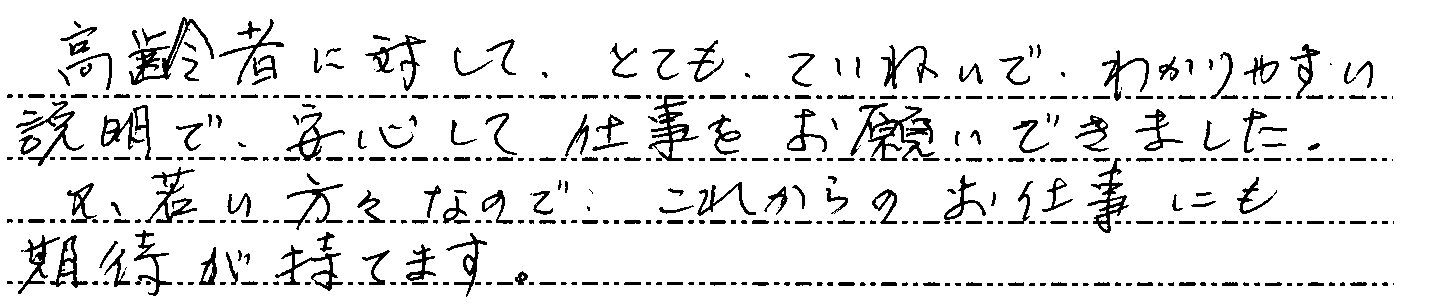 高齢者に対して、とても、ていねいで、わかりやすい
説明で、安心して仕事をお願いできました。
又、若い方々なので、これからのお仕事にも
期待が持てます。